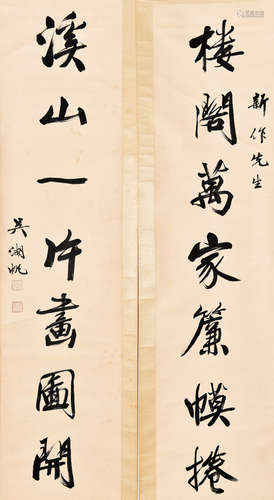 新作先生
楼閣萬家簾幙捲
溪山一片畫圖開
吳湖帆